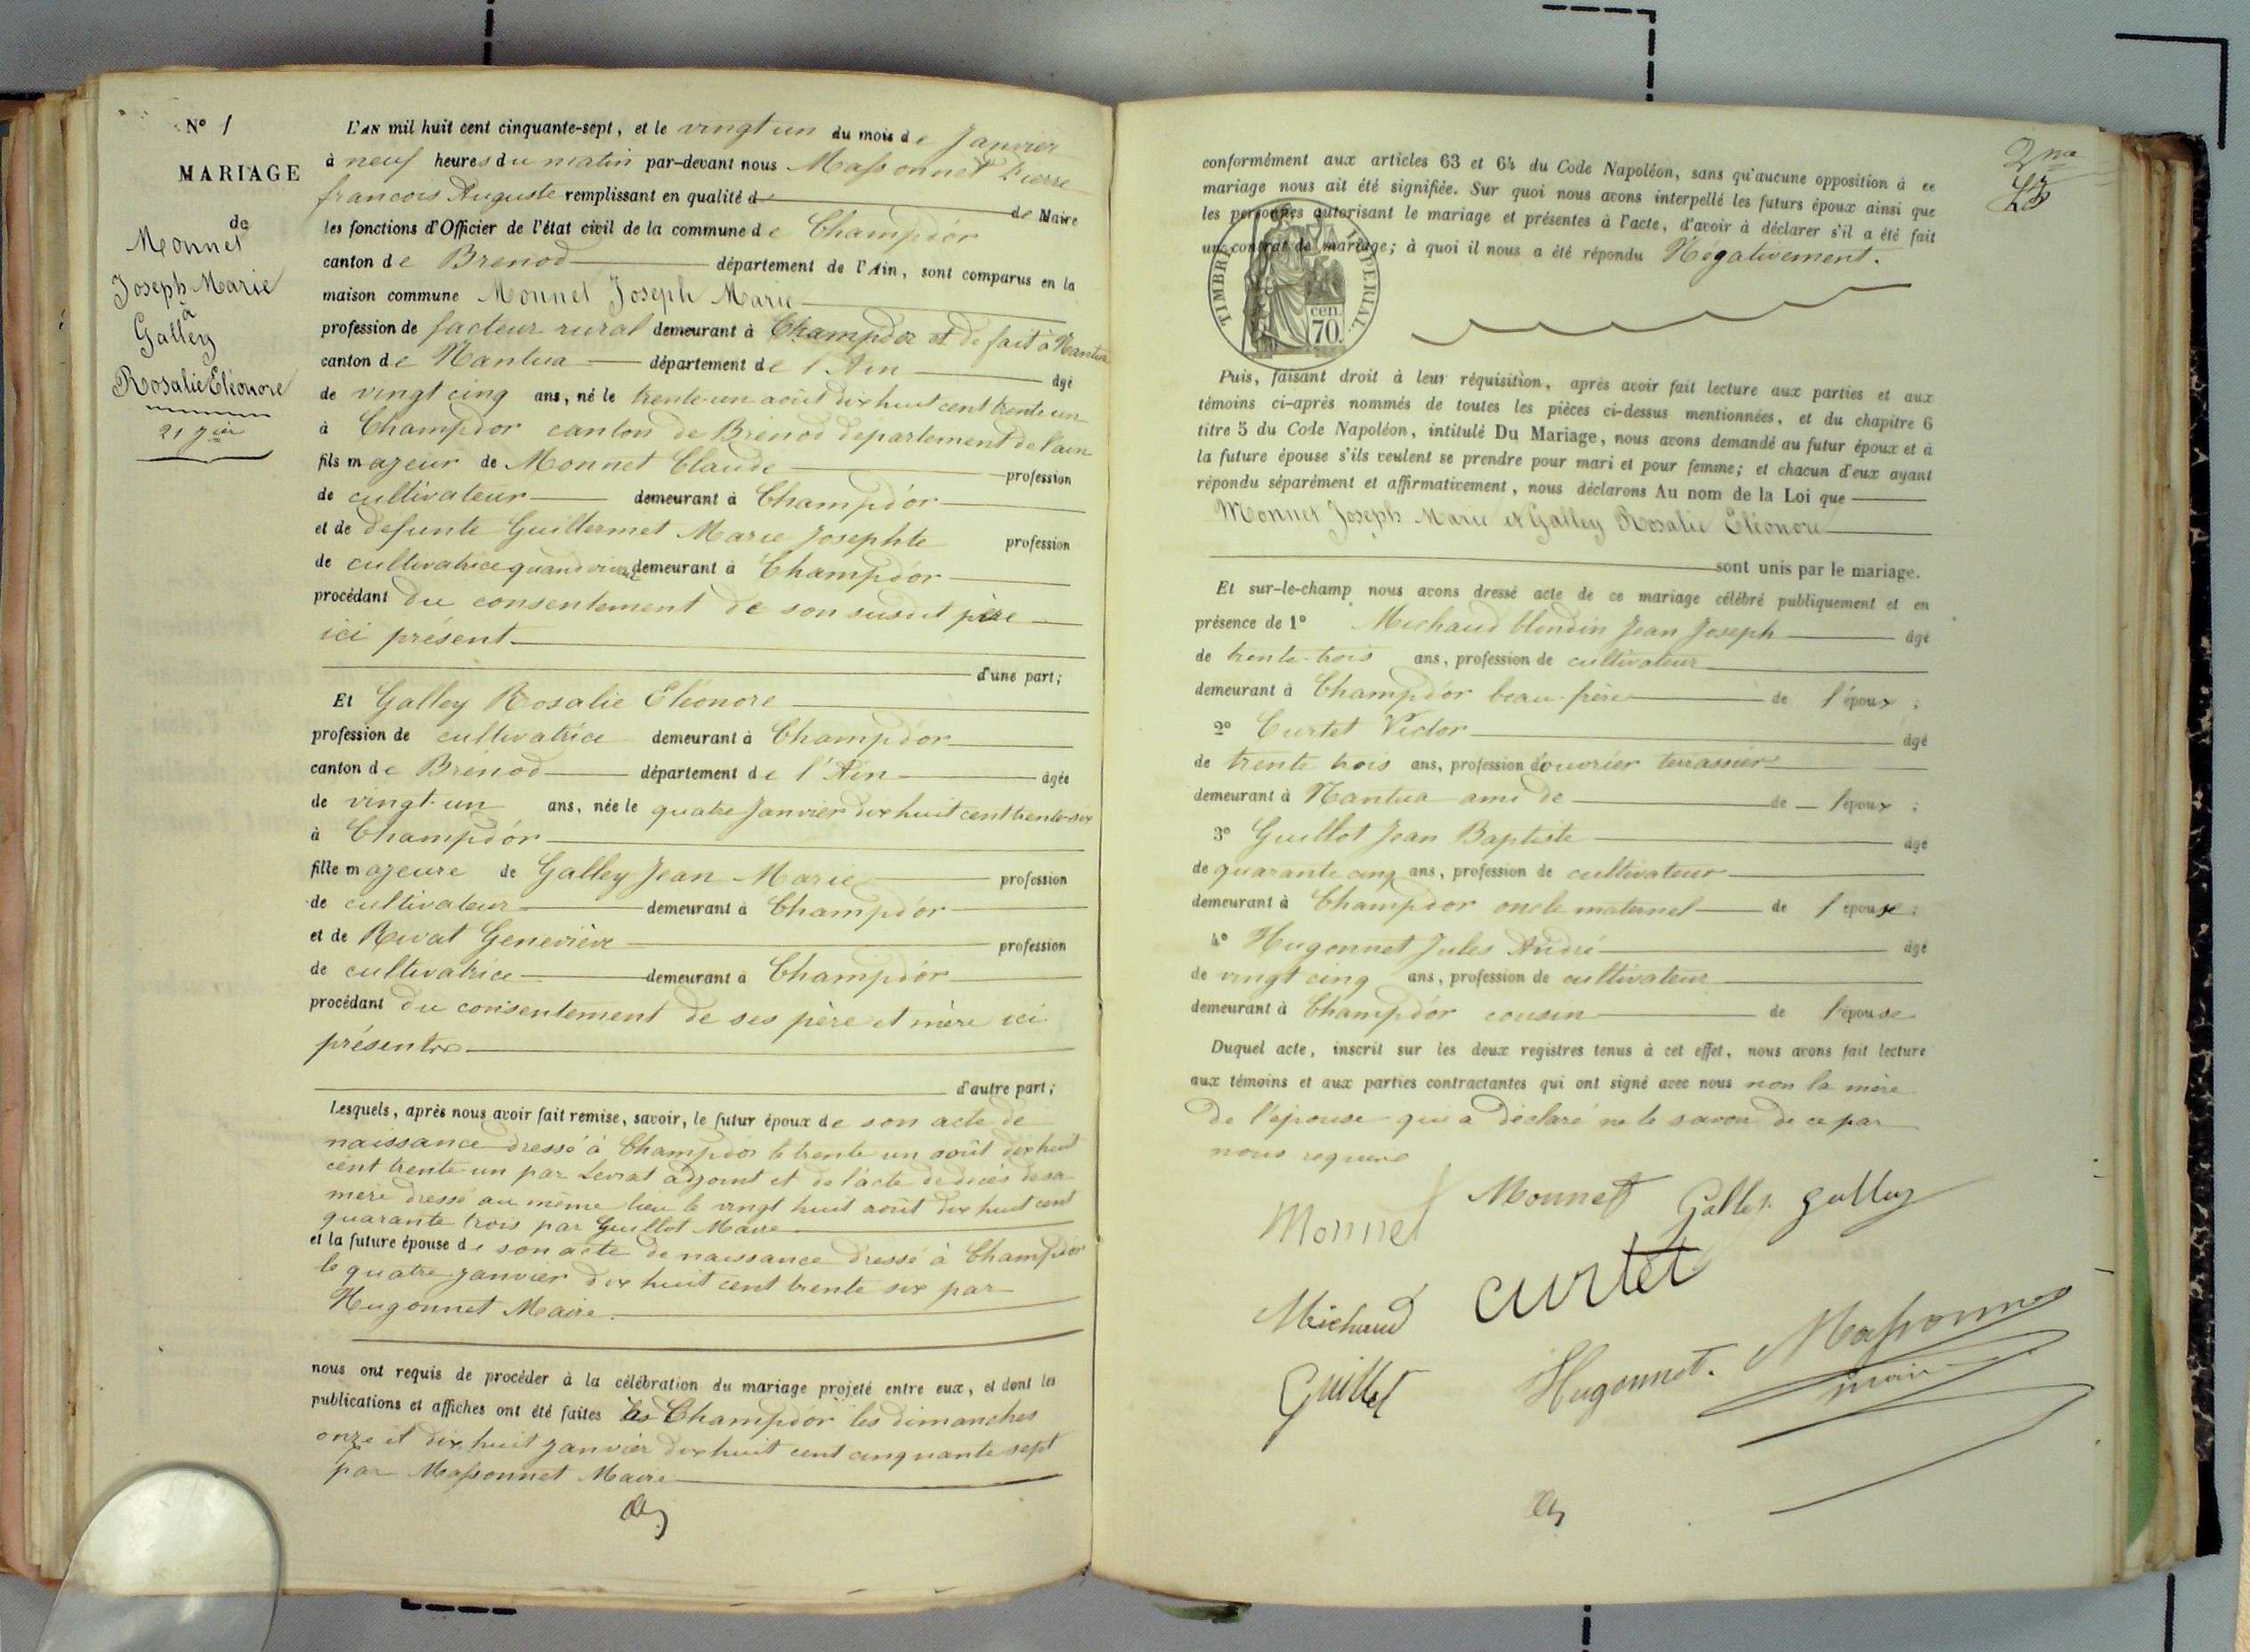 N° 1
MARIAGE
de
Monnet
Joseph Marie
à
Galley
Rosalie Eléonore
21 Jer
L'AN mil huit cent cinquante-sept, et le vingt un du mois de Janvier
à neuf heures du matin par-devant nous Massonnet Pierre
francois Auguste remplissant en qualité de de Maire
les fonctions d'Officier de l'état civil de la commune de Champdor
canton de Brenod département de l'Ain, sont comparus en la
maison commune Monnet Joseph Marie
profession de facteur rural demeurant à Champdor et de fait à Nantua
canton de Nantua département de l'Ain âgé
de vingt cinq ans, né le trente-un août dix huit cent trente un
à Champdor canton de Brénod département de l'ain
fils majeur de Monnet Claude profession
de cultivateur demeurant à Champdor
et de defunte Guillermet Marie Josephte profession
de cultivatrice quand vivait demeurant à Champdor
procédant du consentement de son susdit père
ici présent
d'une part;
Et Galley Rosalie Eléonore
profession de cultivatrice demeurant à Champdor
canton de Brénod département de l'Ain âgée
de vingt-un ans, née le quatre Janvier dix huit cent trente-six
à Champdor
fille majeure de Galley Jean Marie profession
de cultivateur demeurant à Champdor
et de Rivat Geneviève profession
de cultivatrice demeurant à Champdor
procédant du consentement de ses père et mère ici
présents
d'autre part;
Lesquels, après nous avoir fait remise, savoir, le futur époux de son acte de
naissance dressé à Champdor le trente un août dix huit
cent trente-un par Levrat adjoint et de l'acte de décès de sa
mère dressé au même lieu le vingt huit août dix huit cent
quarante trois par Guillot Maire
et la future épouse de son acte de naissance dressé à Champdor
le quatre janvier dix huit cent trente six par
Hugonnet Maire.
nous ont requis de procéder à la célébration du mariage projeté entre eux, et dont les
publications et affiches ont été faites à Champdor les dimanches
onze et dix huit janvier dix huit cent cinquante sept
par Massonnet Maire
2me
conformément aux articles 63 et 64 du Code Napoléon, sans qu'aucune opposition à ce
mariage nous ait été signifiée. Sur quoi nous avons interpellé les futurs époux ainsi que
les personnes autorisant le mariage et présentes à l'acte, d'avoir à déclarer s'il a été fait
un contrat de mariage; à quoi il nous a été répondu Négativement.
TIMBRE IMPERIAL
cen.
70.
Puis, faisant droit à leur réquisition, après avoir fait lecture aux parties et aux
témoins ci-après nommés de toutes les pièces ci-dessus mentionnées, et du chapitre 6
titre 5 du Code Napoléon, intitulé Du Mariage, nous avons demandé au futur époux et à
la future épouse s'ils veulent se prendre pour mari et pour femme; et chacun d'eux ayant
répondu séparément et affirmativement, nous déclarons Au nom de la Loi que
Monnet Joseph Marie et Galley Rosalie Eléonore
sont unis par le mariage.
Et sur-le-champ nous avons dressé acte de ce mariage célébré publiquement et en
présence de 1° Michaud blondin Jean Joseph âgé
de trente-trois ans, profession de cultivateur
demeurant à Champdor beau-frère de l'époux;
2° Curtet Victor âgé
de trente trois ans, profession d'ouvrier terrassier
demeurant à Nantua ami de de l'époux;
3° Guillot Jean Baptiste âgé
de quarante cinq ans, profession de cultivateur
demeurant à Champdor oncle maternel de l'épouse;
4° Hugonnet Jules André âgé
de vingt cinq ans, profession de cultivateur
demeurant à Champdor cousin de l'épouse
Duquel acte, inscrit sur les deux registres tenus à cet effet, nous avons fait lecture
aux témoins et aux parties contractantes qui ont signé avec nous non la mère
de l'épouse qui a déclaré ne le savoir de ce par
nous requise
Monnet Monnet Galley galley
Michaud curtet
Guillot Hugonnet. Massonnet
maire